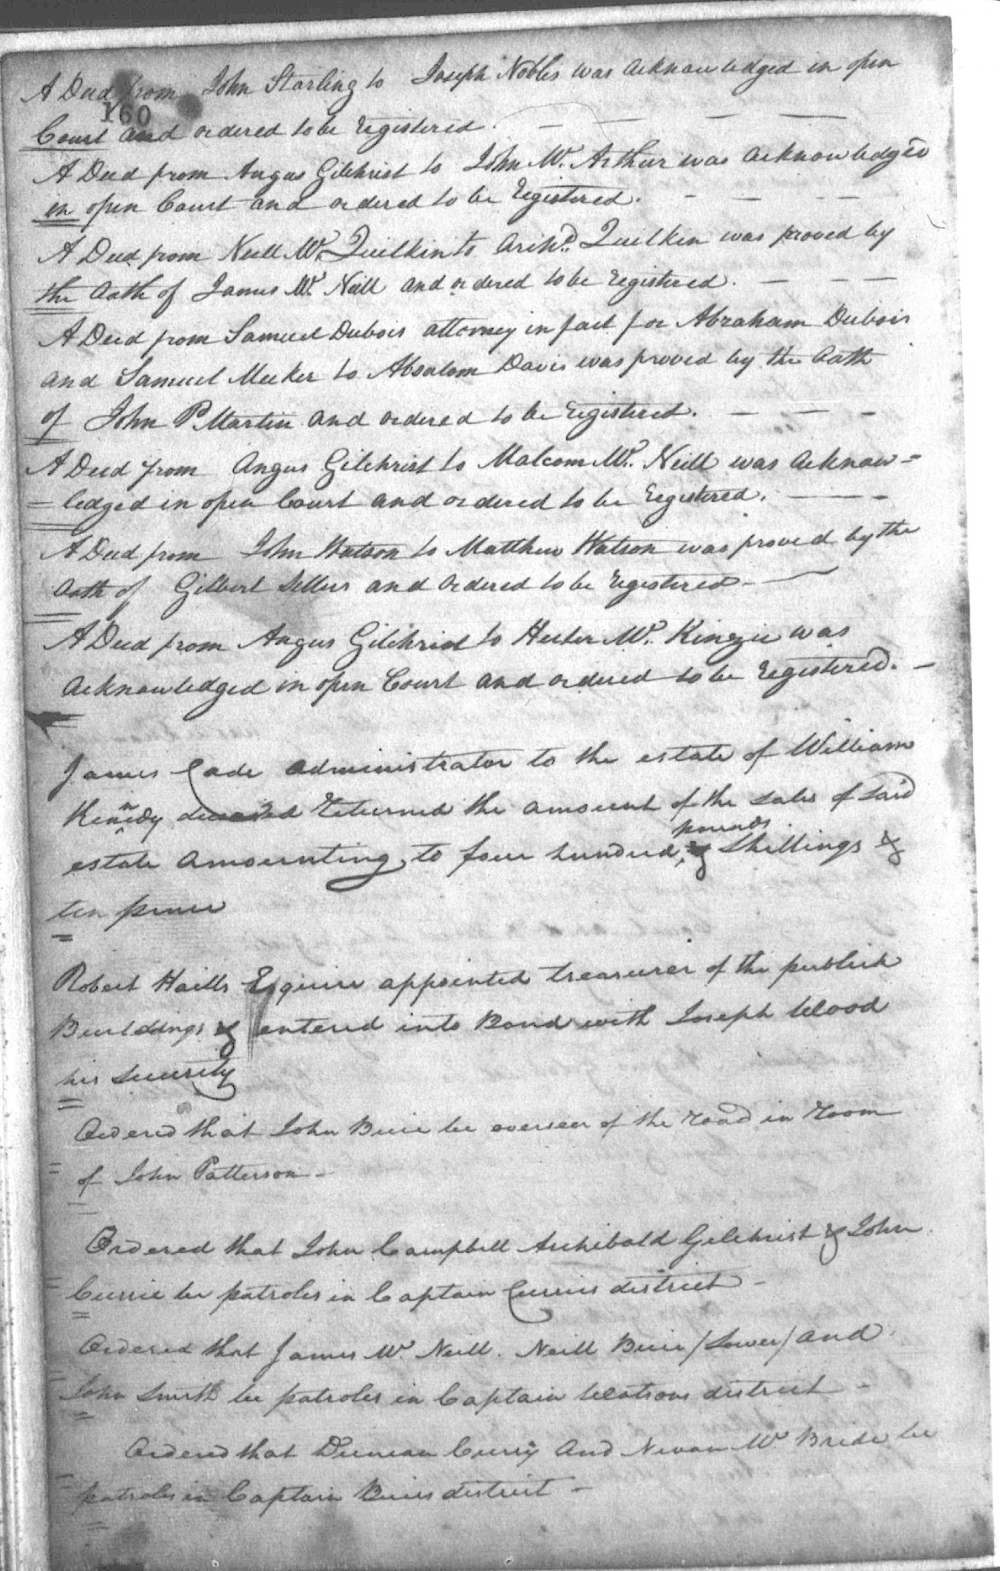 A Deed from John Starling to Joseph Nobles was acknowledged in open
160
Court and ordered to be registered.
A Deed from Angus Gilchrist to John Mc. Arthur was acknowledged
in open Court and ordered to be registered.
A Deed from Neill Mc. Quilkin to Archd. Quilken was proved by
the Oath of James Mc. Neill and ordered to be registered.
A Deed from Samuel Dubois attorney in fact for Abraham Dubois
and Samuel Meeker to Absalom Davis was proved by the Oath
of John P Martin and ordered to be registered.
A Deed from Angus Gilchrist to Malcom Mc. Neill was acknow=
=ledged in open Court and ordered to be registered.
A Deed from John Watson to Matthew Watson was proved by the
Oath of Gilbert Sellers and ordered to be registered
A Deed from Angus Gilchrist to Hector Mc. Kinzie was
acknowledged in open Court and ordered to be registered.
James Cade administrator to the estate of William
Kennedy deceased returned the amount of the sales of said
estate amounting to four hundred pounds Shillings &
ten pence
Robert Haills Esquire appointed treasurer of the publick
Buildings & entered into Bond with Joseph Wood
his security
Ordered that John Buie be overseer of the road in room
of John Patterson
Ordered that John Campbell Archibald Gilchrist & John
Currie be patroles in Captain Curries district
Ordered that James Mc. Neill. Neill Buie /Lower/ and
John Smith be patroles in Captain Watsons district
Ordered that Duncan Curry and Nevan Mc Bride be
patroles in Captain Buies district